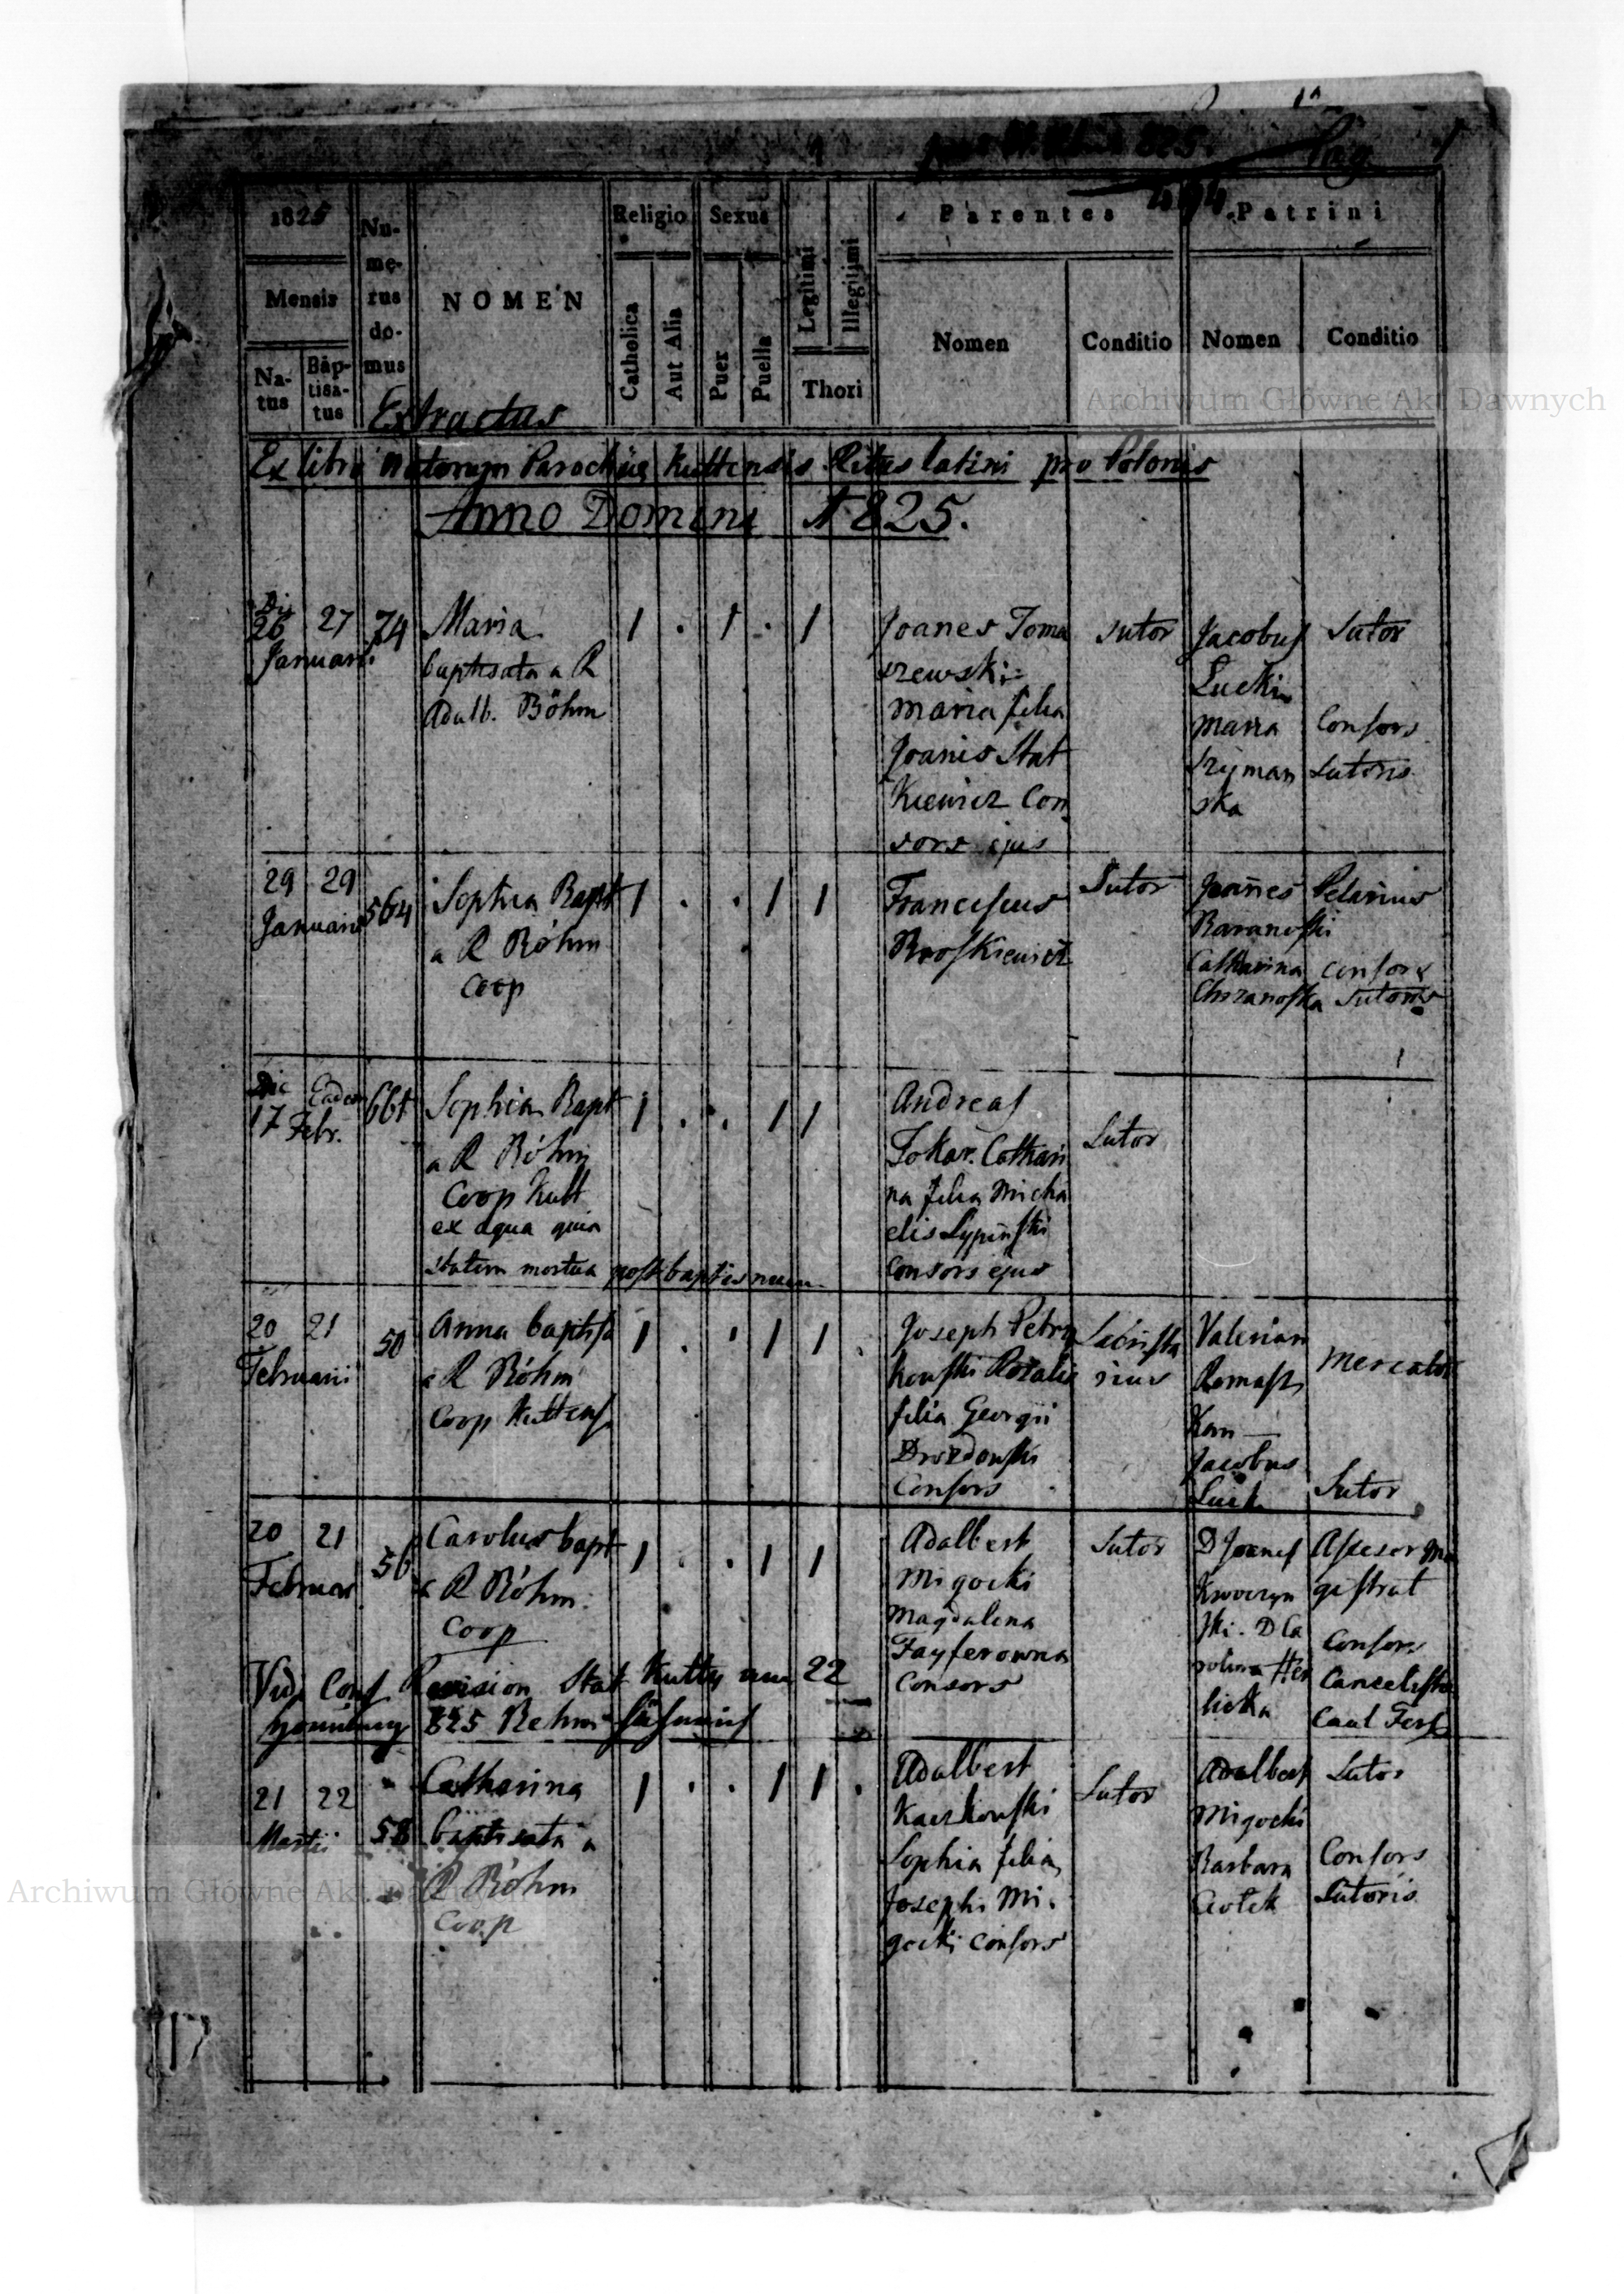 825.
Pag
1825
Mensis
Na-
tus
Bap-
tisa-
tus
Nu-
me-
rus
do-
mus
NOMEN
Religio
Catholica
Aut Alia
Sexus
Puer
Puella
Legitimi
Illegitimi
Thori
Parentes
Nomen
Conditio
Patrini
Nomen
Conditio
Archiwum Główne Akt Dawnych
Extractus
Ex libro Natorum Parochiae Kuttensis Ritus latini pro Polonis
Anno Domini 1825.
26 27 74 Maria 1 . 1 . 1 Joanes Toma Sutor Jacobus Sutor
Januarii baptisata a R szewski Lucki
Adalb. Böhm Maria filia Maria Consors
Joanis Stat Szyman Sutoris
kiewicz Con ska
sors ejus
29 29 564 Sophia Bapt 1 . . 1 1 Franciscus Sutor Joannes
Januarii a R Böhm Roszkiewicz Baranoski
Coop Catharina consors
Chrzanoska Sutoris
Die Eadem 661 Sophia Bapt 1 . . 1 1 Andreas Sutor
17 Febr. a R Böhm Tokar. Cathari
Coop Kutt na filia Micha
ex aqua quia elis Lypinski
statim mortua post baptismum Consors ejus
20 21 50 Anna baptisa 1 . . 1 1 . Joseph Petry Valerian Mercator
Februarii a R Böhm kowski Rozalia
Coop Kuttens filia Georgii
Drozdowski Jacobus
Consors Sutor
20 21 56 Carolus bapt 1 . . 1 1 Adalbert Sutor D Joanes Assesor Ma
Februar a R Böhm Migocki gistrat
Coop Magdalena ski. D Ca Consors
Fayferowna rolina Her Cancelista
Consors licka
Revision Stat Kutty 22
825
21 22 58 Catharina 1 . . 1 1 . Adalbert Sutor Adalbert Sutor
Martii baptisata a Kaczkowski Migocki
R Böhm Sophia filia Barbara Consors
Coop Josephi Mi- Ciołek Sutoris
gocki consors
Archiwum Główne Akt Dawnych